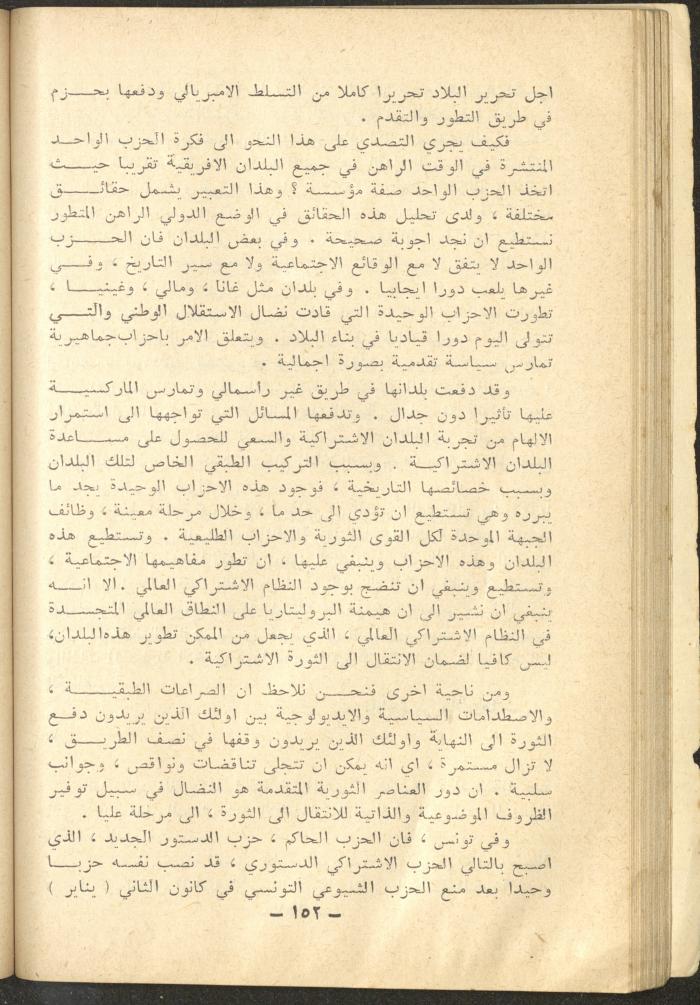 اجل تحرير البلاد تحريرا كاملا من التسلط الامبريالي ودفعها بحزم
في طريق التطور والتقدم .
فكيف يجري التصدي على هذا النحو الى فكرة الحزب الواحد
المنتشرة في الوقت الراهن في جميع البلدان الافريقية تقريبا حيث
اتخذ الحزب الواحد صفة مؤسسة ؟ وهذا التعبير يشمل حقائق
مختلفة ، ولدى تحليل هذه الحقائق في الوضع الدولي الراهن المتطور
نستطيع ان نجد اجوبة صحيحة . وفي بعض البلدان فان الحزب
الواحد لا يتفق لا مع الوقائع الاجتماعية ولا مع سير التاريخ ، وفي
غيرها يلعب دورا ايجابيا . وفي بلدان مثل غانا ، ومالي ، وغينيا ،
تطورت الاحزاب الوحيدة التي قادت نضال الاستقلال الوطني والتي
تتولى اليوم دورا قياديا في بناء البلاد . ويتعلق الامر باحزاب جماهيرية
تمارس سياسة تقدمية بصورة اجمالية .
وقد دفعت بلدانها في طريق غير راسمالي وتمارس الماركسية
عليها تأثيرا دون جدال . وتدفعها المسائل التي تواجهها الى استمرار
الالهام من تجربة البلدان الاشتراكية والسعي للحصول على مساعدة
البلدان الاشتراكية . وبسبب التركيب الطبقي الخاص لتلك البلدان
وبسبب خصائصها التاريخية ، فوجود هذه الاحزاب الوحيدة يجد ما
يبرره وهي تستطيع ان تؤدي الى حد ما ، وخلال مرحلة معينة ، وظائف
الجبهة الموحدة لكل القوى الثورية والاحزاب الطليعية . وتستطيع هذه
البلدان وهذه الاحزاب وينبغي عليها ، ان تطور مفاهيمها الاجتماعية ،
وتستطيع وينبغي ان تنضج بوجود النظام الاشتراكي العالمي . الا انه
ينبغي ان نشير الى ان هيمنة البروليتاريا على النطاق العالمي المتجسدة
في النظام الاشتراكي العالمي ، الذي يجعل من الممكن تطوير هذه البلدان،
ليس كافيا لضمان الانتقال الى الثورة الاشتراكية .
ومن ناحية اخرى فنحن نلاحظ ان الصراعات الطبقية ،
والاصطدامات السياسية والايديولوجية بين اولئك الذين يريدون دفع
الثورة الى النهاية واولئك الذين يريدون وقفها في نصف الطريق ،
لا تزال مستمرة ، اي انه يمكن ان تتجلى تناقضات ونواقص ، وجوانب
سلبية . ان دور العناصر الثورية المتقدمة هو النضال في سبيل توفير
الظروف الموضوعية والذاتية للانتقال الى الثورة ، الى مرحلة عليا .
وفي تونس ، فان الحزب الحاكم ، حزب الدستور الجديد ، الذي
اصبح بالتالي الحزب الاشتراكي الدستوري ، قد نصب نفسه حزبا
وحيدا بعد منع الحزب الشيوعي التونسي في كانون الثاني ( يناير )
– ١٥٢ –